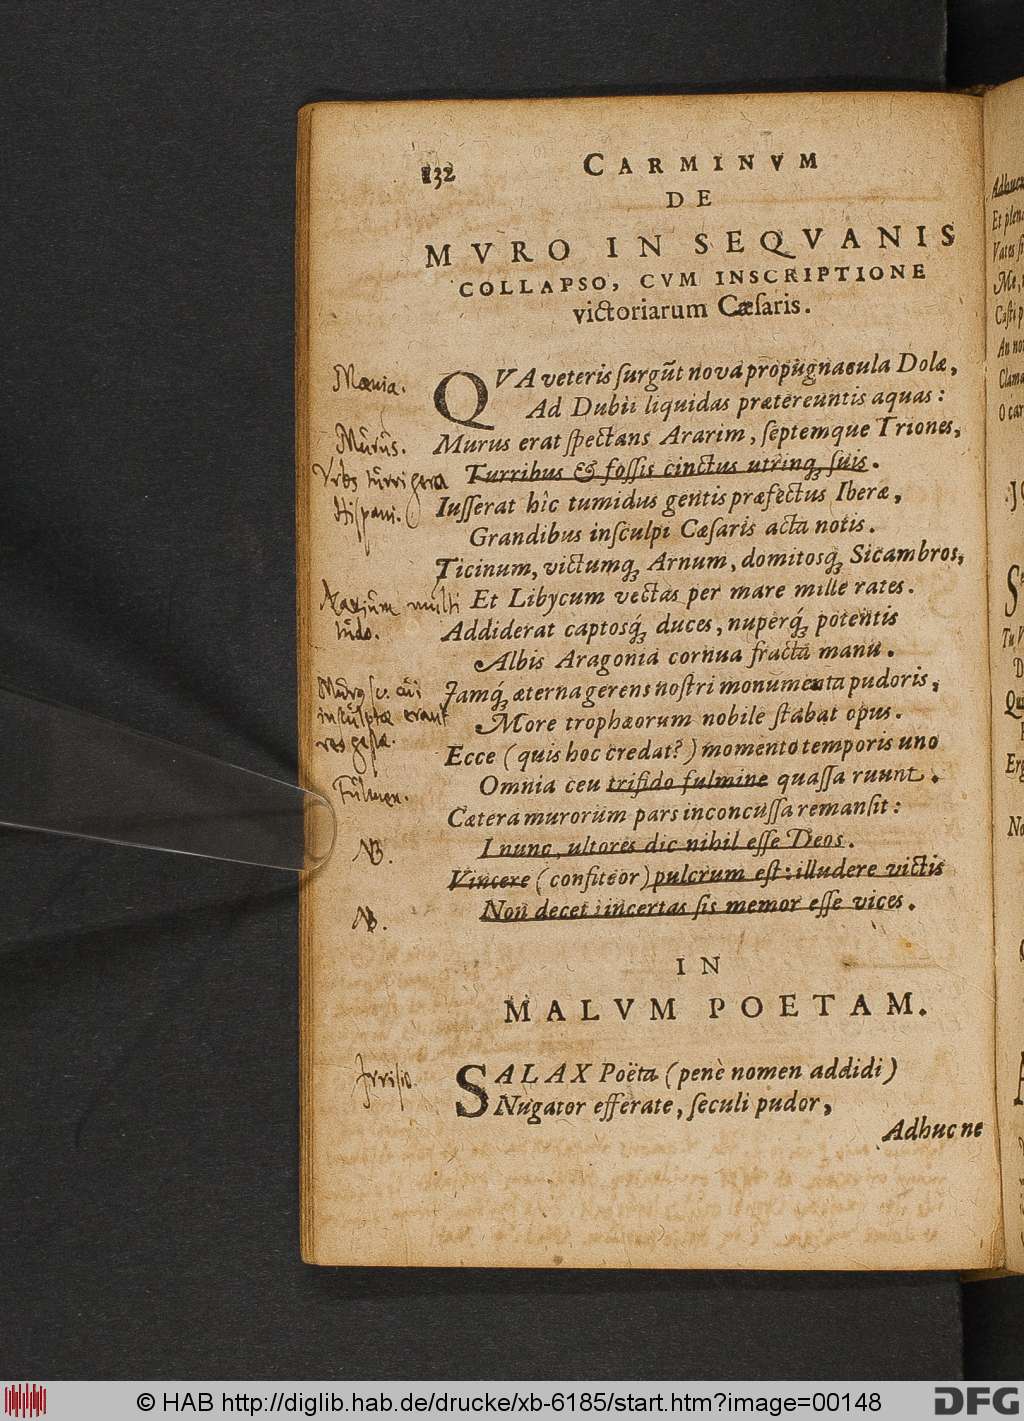 132 CARMINVM
DE
MVRO IN SEQVANIS
COLLAPSO, CVM INSCRIPTIONE
victoriarum Cæſaris.
Mœnia.
QVA veteris ſurgūt nova propugnacula Dolæ,
Ad Dubii liquidas prætereuntis aquas:
Murus.
Murus erat ſpectans Ararim, ſeptemque Triones,
Vrbs turrigera
Turribus & foſſis cinctus utrinq; ſuis.
Hiſpani.
Iuſſerat hîc tumidus gentis præfectus Iberæ,
Grandibus inſculpi Cæſaris acta notis.
Ticinum, victumq; Arnum, domitosq; Sicambros,
Navium multi
Et Libycum vectas per mare mille rates.
tudo.
Addiderat captosq́; duces, nuperq́; potentis
Albis Aragoniâ cornua fracta manu.
Murus sc. cui
Jamq́; æterna gerens noſtri monumenta pudoris,
insculptæ erant
More trophæorum nobile ſtabat opus.
res geſtæ.
Ecce (quis hoc credat?) momento temporis uno
Fulmen.
Omnia ceu trifido fulmine quaſſa ruunt.
Cætera murorum pars inconcuſſa remanſit:
NB.
I nunc, ultores dic nihil eſſe Deos.
Vincere (confiteor) pulcrum eſt: illudere victis
NB.
Non decet: incertas ſis memor eſſe vices.
IN
MALVM POETAM.
Irriſio.
SALAX Poëta (penè nomen addidi)
Nugator efferate, ſeculi pudor,
Adhuc ne
Adhuc
Et plen
Vates ſi
Me,
Caſti p
An no
Clama
O car
© HAB http://diglib.hab.de/drucke/xb-6185/start.htm?image=00148
DFG